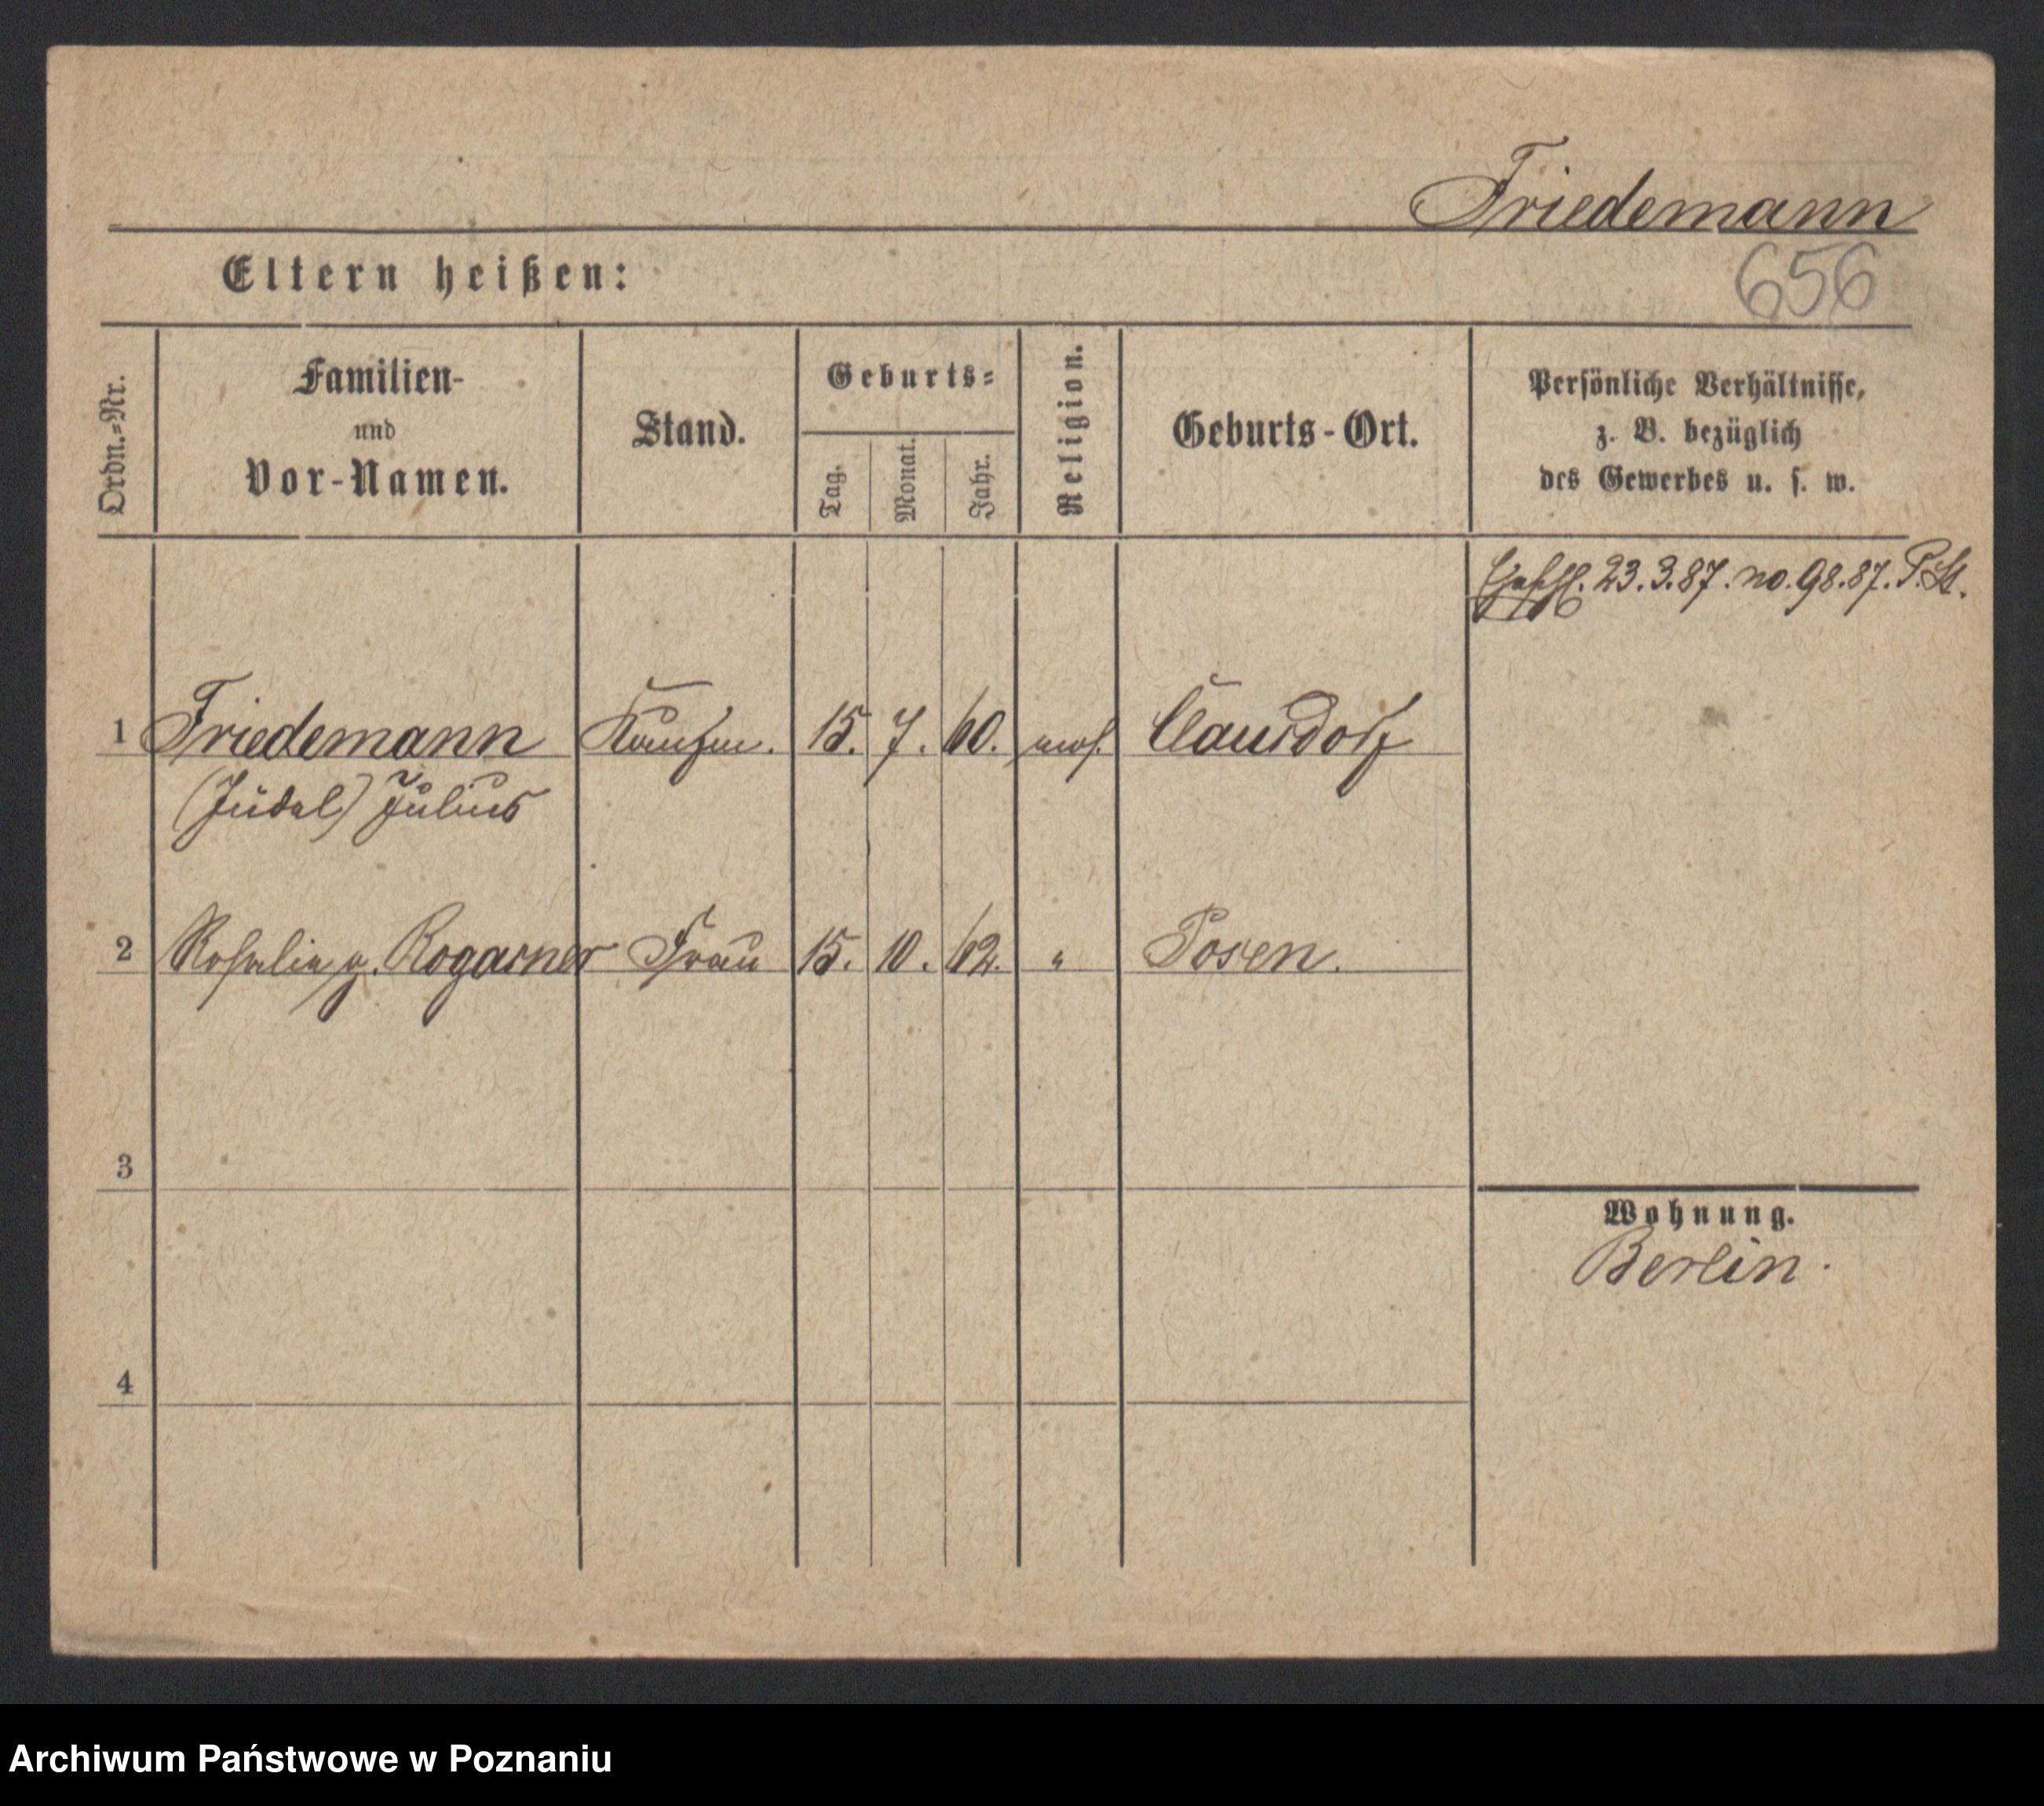 Friedemann
656
Eltern heißen:
Ordn.=Nr.
Familien-
und
Vor-Namen.
Stand.
Geburts=
Tag.
Monat.
Jahr.
Religion.
Geburts-Ort.
Persönliche Verhältnisse,
z. B. bezüglich
des Gewerbes u. s. w.
23.3.87. no. 98.87. P. St.
1 Friedemann Kaufm. 15. 7. 60. mos. Clausdorf
(Judel) Julius
2 Rosalie g. Rogasner Frau 15. 10. 62. " Posen.
3
Wohnung.
Berlin.
4
Archiwum Państwowe w Poznaniu